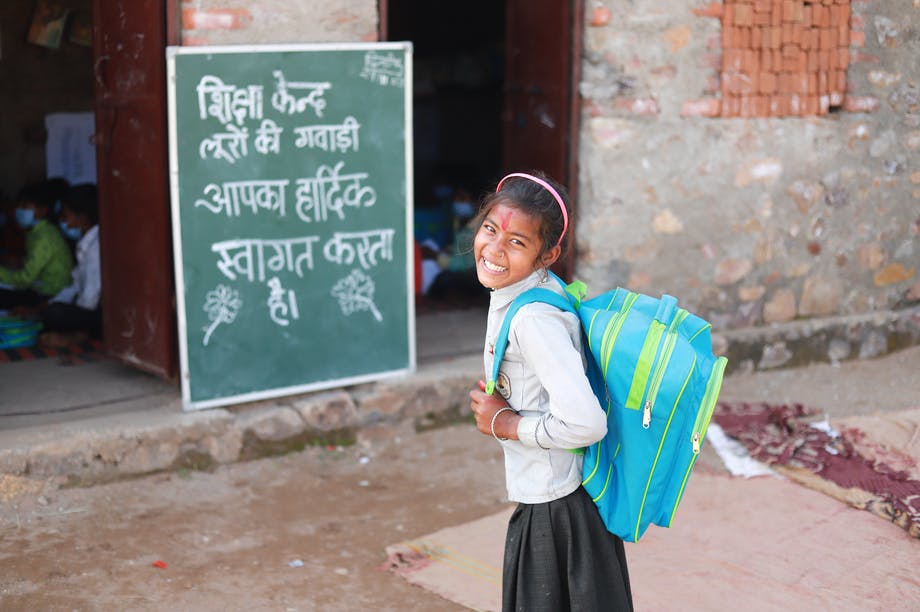 शिक्षा केन्द
लूरों की गवाड़ी
आपका हार्दिक
स्वागत करता
है।